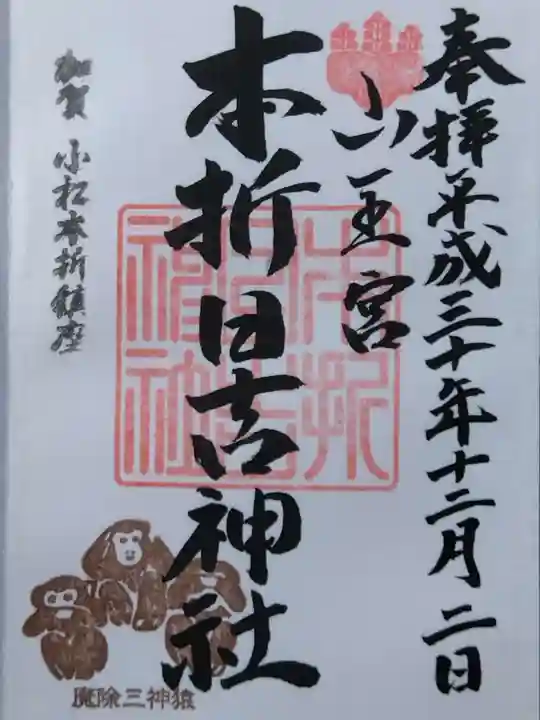 奉拝 平成三十年十二月二日
山王宮
本折日吉神社
加賀 小松本折鎮座
魔除三神猿
本折日吉神社